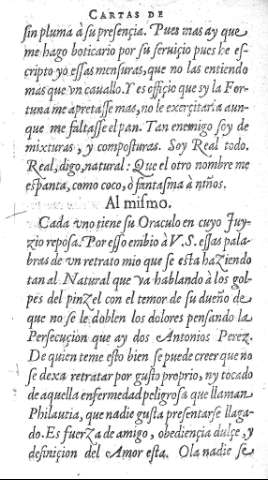 CARTAS DE
sin pluma à su presençia. Pues mas ay que
me hago boticario por su seruiçio pues he es-
cripto yo essas mensuras, que no las entiendo
mas que vn cauallo. Y es offiçio que sy la For-
tuna me apretasse mas, no le exerçitaria aun-
que me faltasse el pan. Tan enemigo soy de
mixturas, y composturas. Soy Real todo.
Real, digo, natural: Que el otro nombre me
espanta, como coco, ó fantasma à niños.
Al mismo.
Cada vno tiene su Oraculo en cuyo Juy-
zio reposa. Por esso embio à V.S. essas pala-
bras de vn retrato mio que se esta haziendo
tan al Natural que va hablando à los gol-
pes del pinzel con el temor de su dueño de
que no se le doblen los dolores pensando la
Persecuçion que ay dos Antonios Perez.
De quien teme esto bien se puede creer que no
se dexa retratar por gusto proprio, ny tocado
de aquella enfermedad peligrosa que llaman
Philautia, que nadie gusta presentarse llaga-
do. Es fuerza de amigo, obediençia dulçe, y
definiçion del Amor esta. Ola nadie se